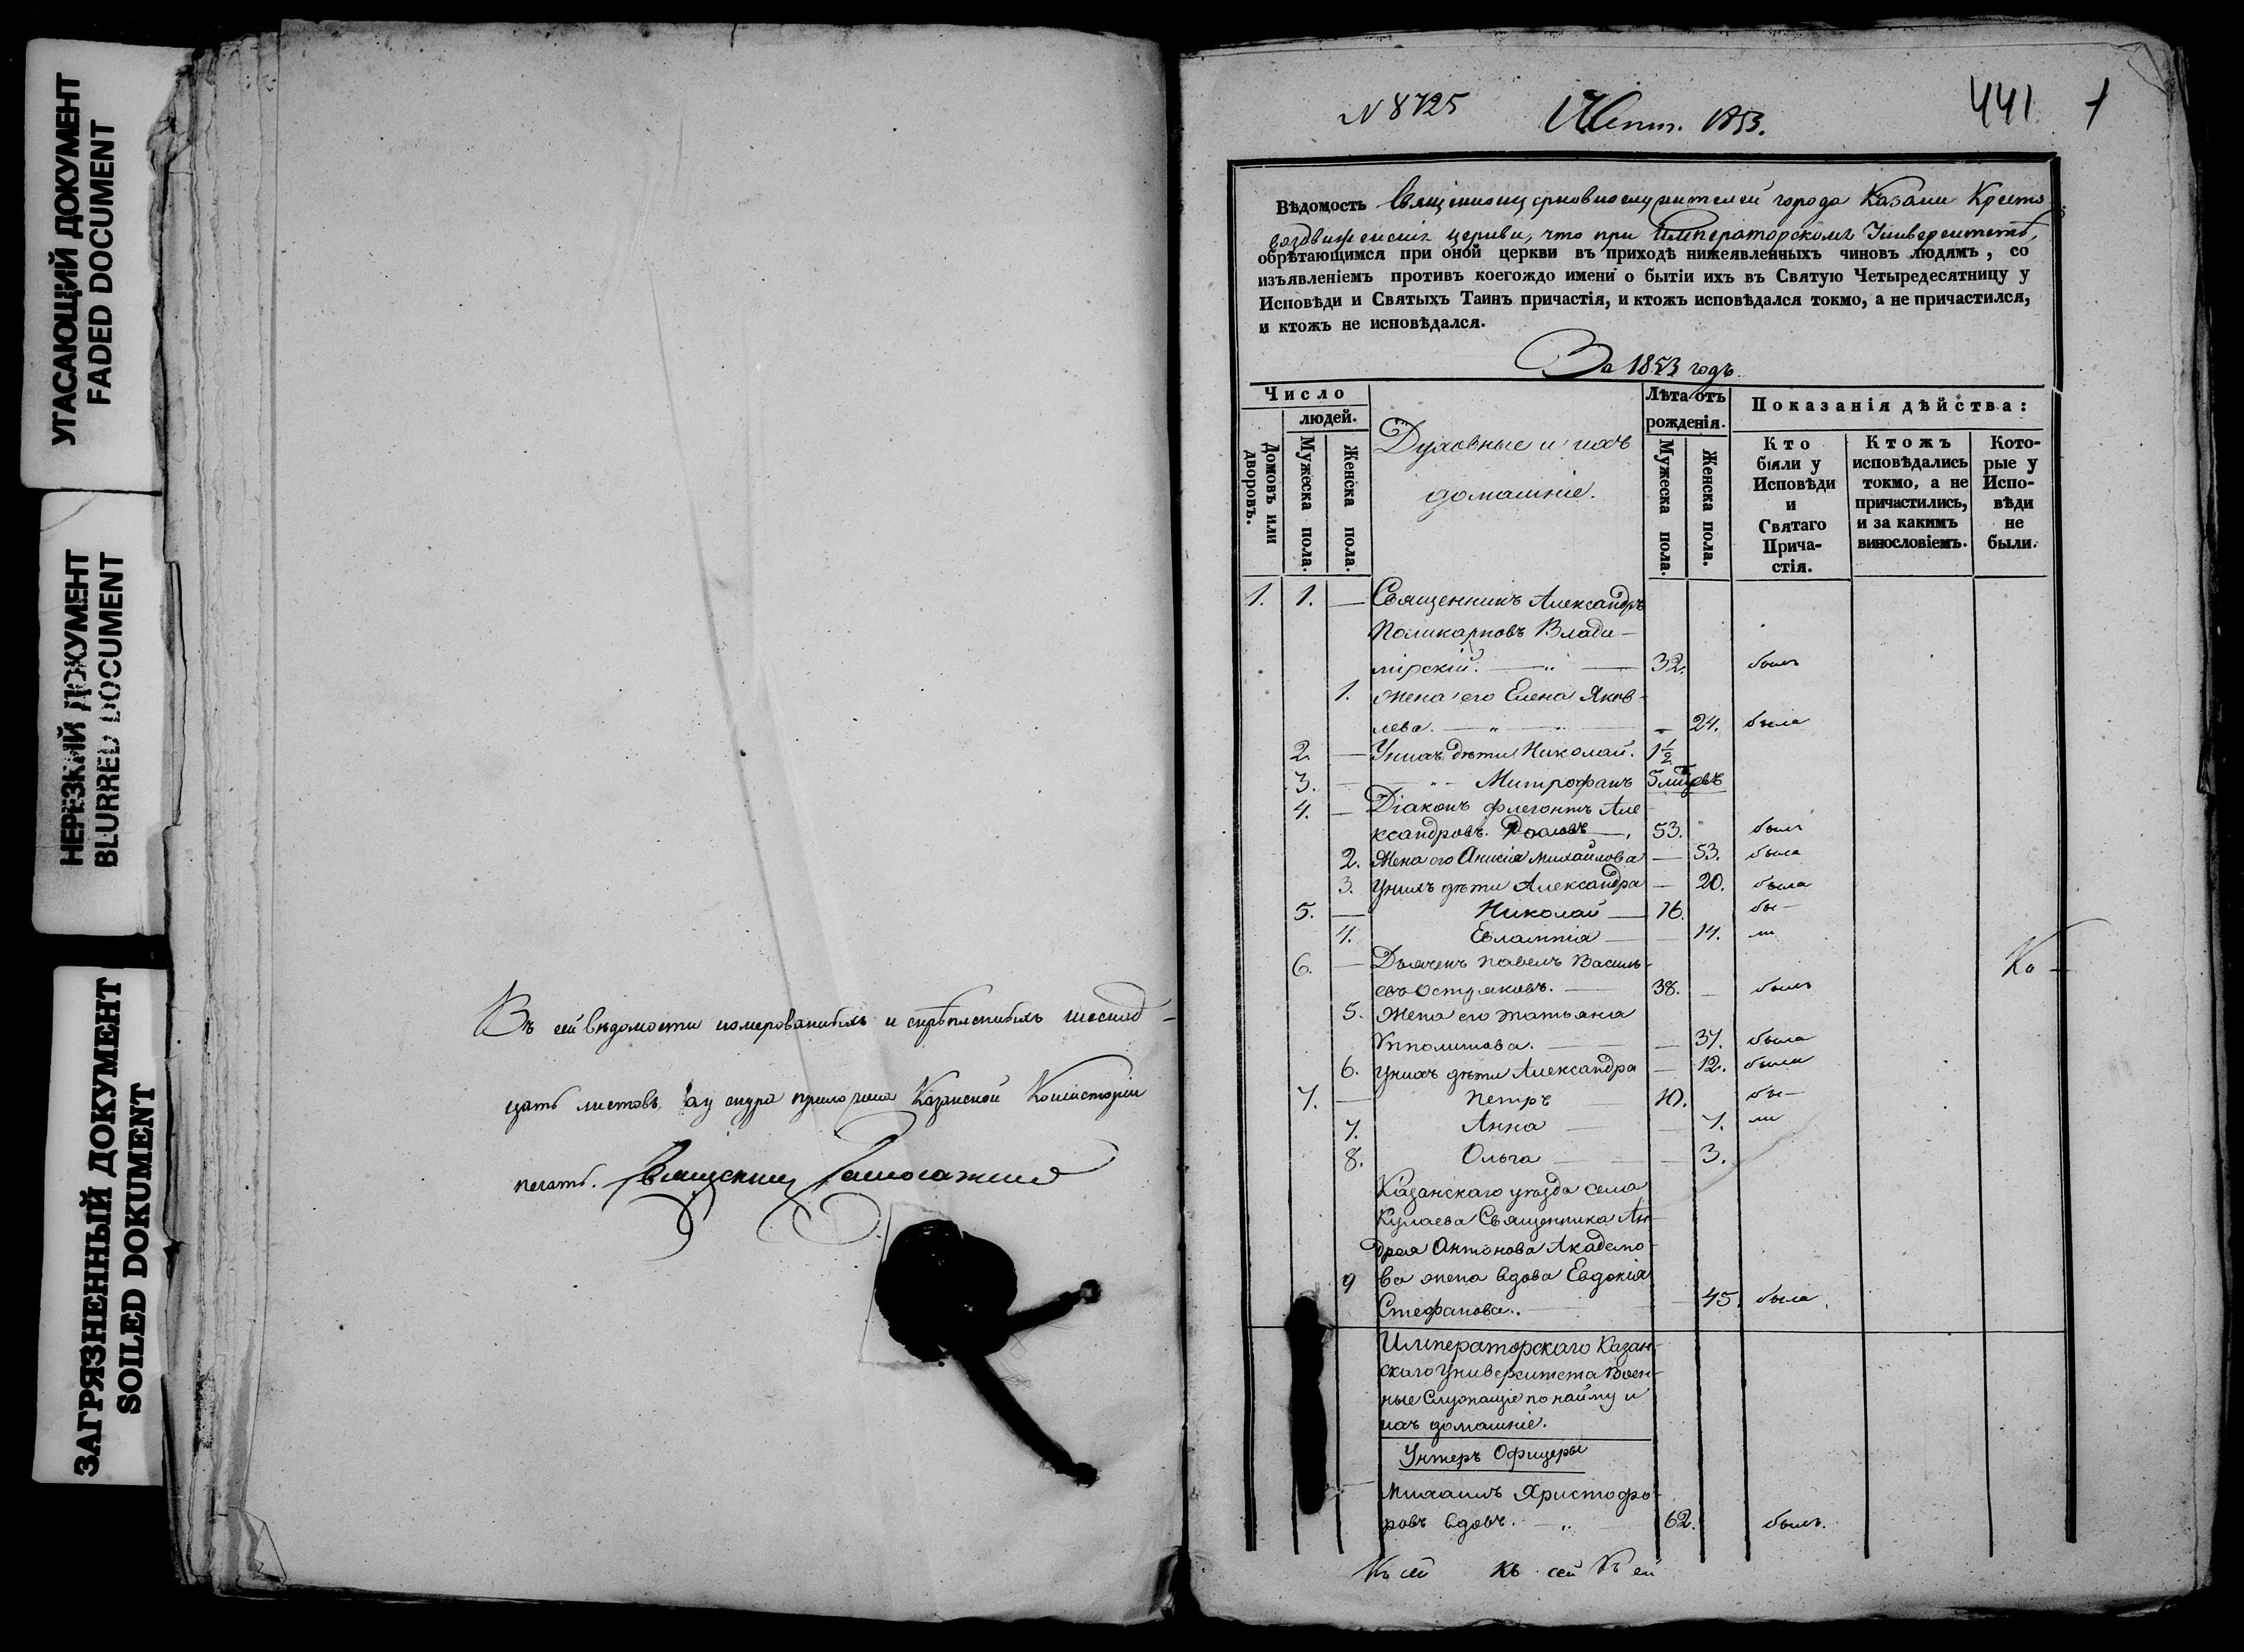 УГАСАЮЩИЙ ДОКУМЕНТ
FADED DOCUMENT
НЕРЕЗКИЙ ДОКУМЕНТ
BLURRED DOCUMENT
ЗАГРЯЗНЕННЫЙ ДОКУМЕНТ
SOILED DOKUMENT
Въ сей вѣдомости номерованныхъ и скрѣпленныхъ шеснад-
цать листовъ, а у снура приложена Казанской Консисторіи
печать.
N 8725
1853.
441
1
Вѣдомость Священноцерковнослужителей города Казани Кресто-
воздвиженскія церкви, что при Императорскомъ Университетѣ,
обрѣтающимся при оной церкви въ приходѣ нижеявленныхъ чиновъ людямъ, со
изъявленіемъ противъ коегождо имени о бытіи ихъ въ Святую Четыредесятницу у
Исповѣди и Святыхъ Таинъ причастія, и ктожъ исповѣдался токмо, а не причастился,
и ктожъ не исповѣдался.
За 1853 годъ.
Число
людей.
Домовъ или дворовъ.
Мужеска пола.
Женска пола.
Духовные и ихъ
домашніе.
Лѣта отъ
рожденія.
Мужеска пола.
Женска пола.
Показанія дѣйства:
Кто
были у
Исповѣди
и
Святаго
Прича-
стія.
Ктожъ
исповѣдались
токмо, а не
причастились,
и за какимъ
винословіемъ.
Кото-
рые у
Испо-
вѣди
не
были.
1. 1. — Священникъ Александръ
Поликарповъ Влади-
мірскій. — „ — 32. былъ
1. Жена его Елена Яков-
лева. — „ — 24. была
2. — У нихъ дѣти Николай. 1½
3. — „ — Митрофанъ 5 мѣсцовъ
4. — Діаконъ Флегонтъ Але-
ксандровъ. — 53. былъ
2. Жена его Анисія Михайлова — 53. была
3. У нихъ дѣти Александра — 20. была
5. — Николай — 16. бы-
4. Евлампія — 14. ли
6. — Дьячекъ Павелъ Василь-
евъ Остряковъ. — 38. — былъ
5. Жена его Татьяна
Ипполитова. — 37. была
6. У нихъ дѣти Александра — 12. была
7. — Петръ 10. бы-
7. Анна — 7. ли
8. Ольга — 3.
Казанскаго уѣзда села
Кулаева Священника Ан-
дрея Антонова Академо-
9 ва жена вдова Евдокія
Стефанова. — 45. была.
Императорскаго Казан-
скаго Университета Воен-
ные Служащіе по найму и
ихъ домашніе.
Унтеръ Офицеры
Михаилъ Христофо-
ровъ вдовъ. — „ 62. былъ.
Ка-
Къ сей Къ сей Къ сей